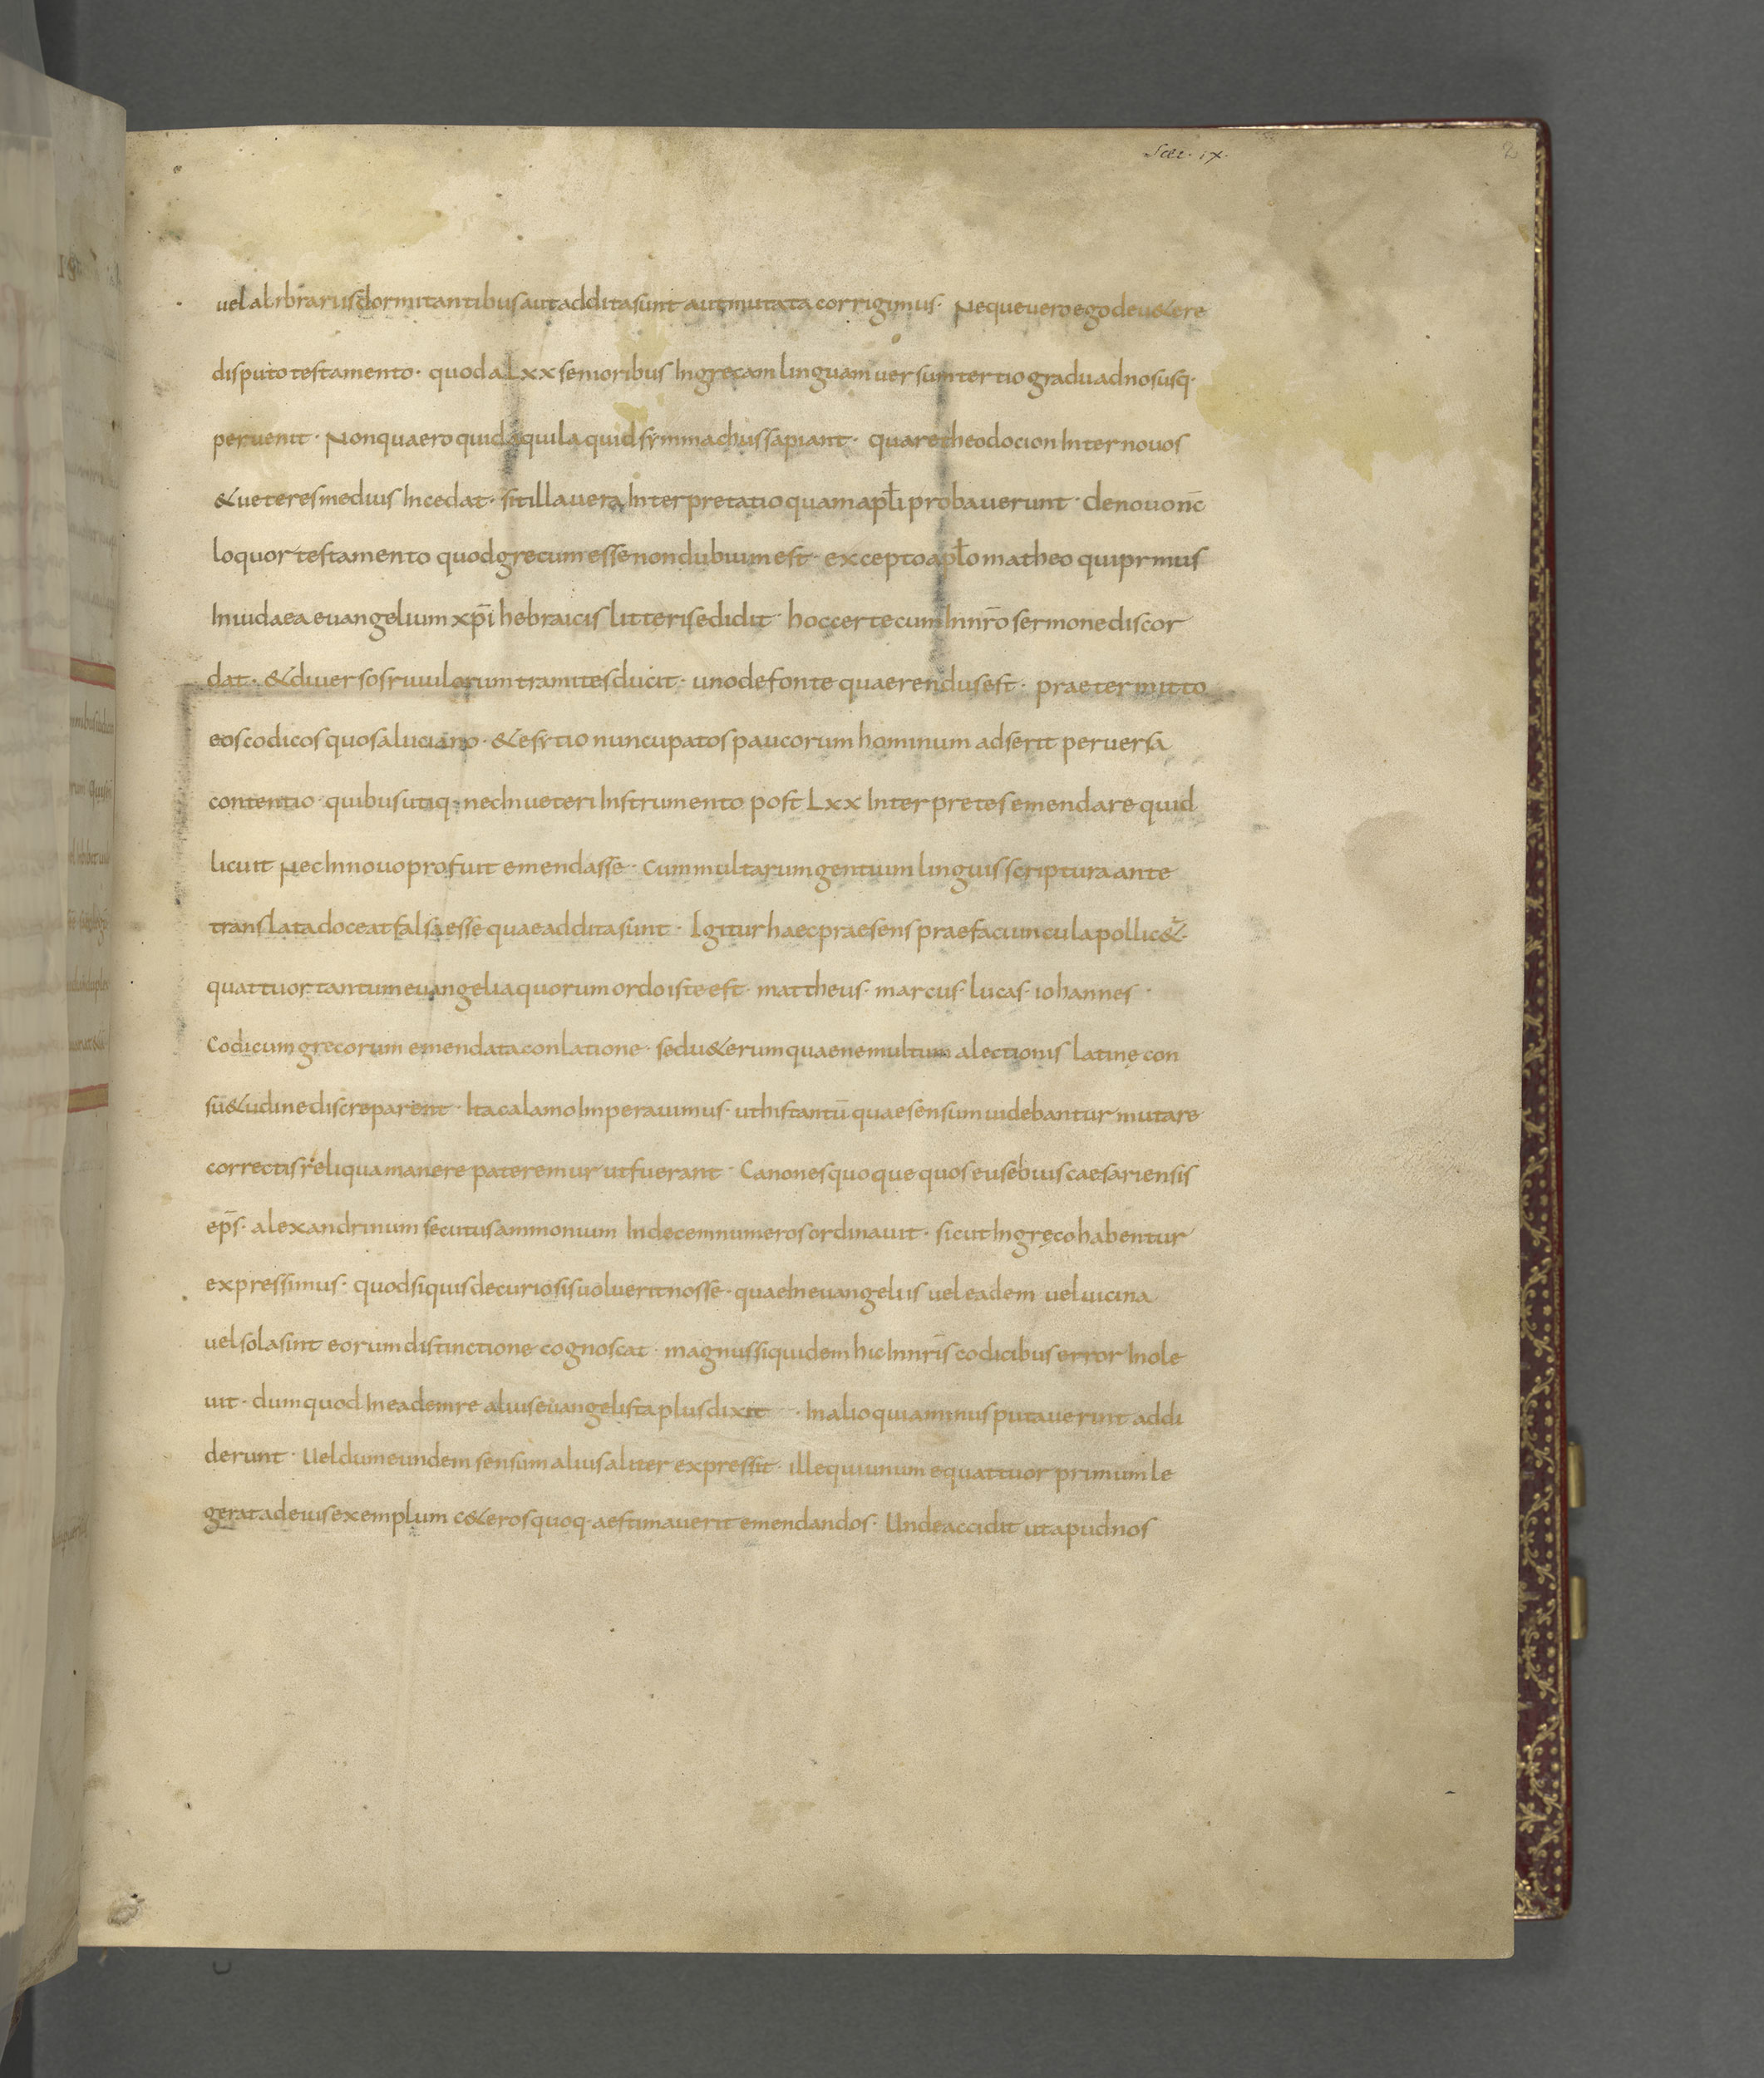 Saec. IX.
2
uel a librariis dormitantibus aut addita sunt aut mutata corrigimus · Neque uero ego de uet&ere
disputo testamento · quod a Lxx senioribus In grecam linguam uersum tertio gradu ad nos usq·
peruenit · Non quaero quid aquila quid symmachus sapiant · quare theodocion Inter nouos
& ueteres medius Incedat · sit illa uera Interpretatio quam apl̄i probauerunt · de nouo nc̄
loquor testamento quod grecum esse non dubium est · excepto apl̄o matheo qui primus
In iudaea euangelium xp̄i hebraicis litteris edidit · hoc certe cum In nr̄o sermone discor
dat · & diuersos riuulorum tramites ducit · uno de fonte quaerendus est · praetermitto
eos codicos quos a luciano · & esytio nuncupatos paucorum hominum adserit peruersa
contentio · quibus utiq· nec In ueteri Instrumento post Lxx Interpretes emendare quid
licuit Nec In nouo profuit emendasse · Cum multarum gentium linguis scriptura ante
translata doceat falsa esse quae addita sunt · Igitur haec praesens praefaciuncula pollic&·
quattuor tantum euangelia quorum ordo iste est · mattheus · marcus · lucas · iohannes ·
Codicum grecorum emendata conlatione · sed u&erum quae ne multum a lectionis latine con
su&udine discreparent · Ita calamo Imperauimus · ut his tantū quae sensum uidebantur mutare
correctis reliqua manere pateremur ut fuerant · Canones quoque quos eusebius caesariensis
ep̄s · alexandrinum secutus ammonium In decem numeros ordinauit · sicut In gręco habentur
expressimus · quod si quis de curiosis uoluerit nosse · quae In euangeliis uel eadem uel uicina
uel sola sint eorum distinctione cognoscat · magnus siquidem hic In nr̄is codicibus error Inole
uit · dum quod In eadem re alius euangelista plus dixit · In alio quia minus putauerint addi
derunt · Uel dum eundem sensum alius aliter expressit · ille qui unum e quattuor primum le
gerat ad eius exemplum c&eros quoq· aestimauerit emendandos · Unde accidit ut apud nos